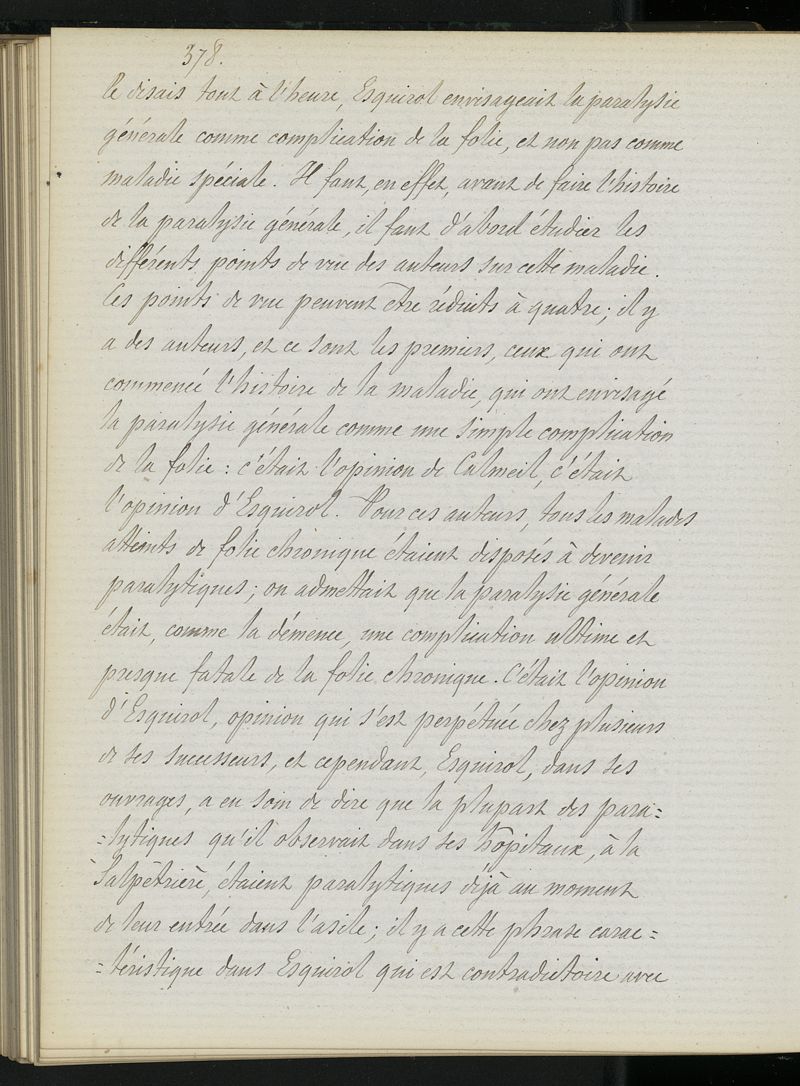 378.
le disais tout à l'heure, Esquirol envisageait la paralysie
générale comme complication de la folie, et non pas comme
maladie spéciale. Il faut, en effet, avant de faire l'histoire
de la paralysie générale, il faut d'abord étudier les
différents points de vue des auteurs sur cette maladie.
Ces points de vue peuvent être réduits à quatre; il y
a des auteurs, et ce sont les premiers, ceux qui ont
commencé l'histoire de la maladie, qui ont envisagé
la paralysie générale comme une simple complication
de la folie : c'était l'opinion de Calmeil, c'était
l'opinion d'Esquirol. Pour ces auteurs, tous les malades
atteints de folie chronique étaient disposés à devenir
paralytiques; on admettait que la paralysie générale
était, comme la démence, une complication ultime et
presque fatale de la folie chronique. C'était l'opinion
d'Esquirol, opinion qui s'est perpétuée chez plusieurs
de ses successeurs, et cependant, Esquirol, dans ses
ouvrages, a eu soin de dire que la plupart des para=
=lytiques qu'il observait dans ses hôpitaux, à la
Salpêtrière, étaient paralytiques déjà au moment
de leur entrée dans l'asile; il y a cette phrase carac=
=téristique dans Esquirol qui est contradictoire avec